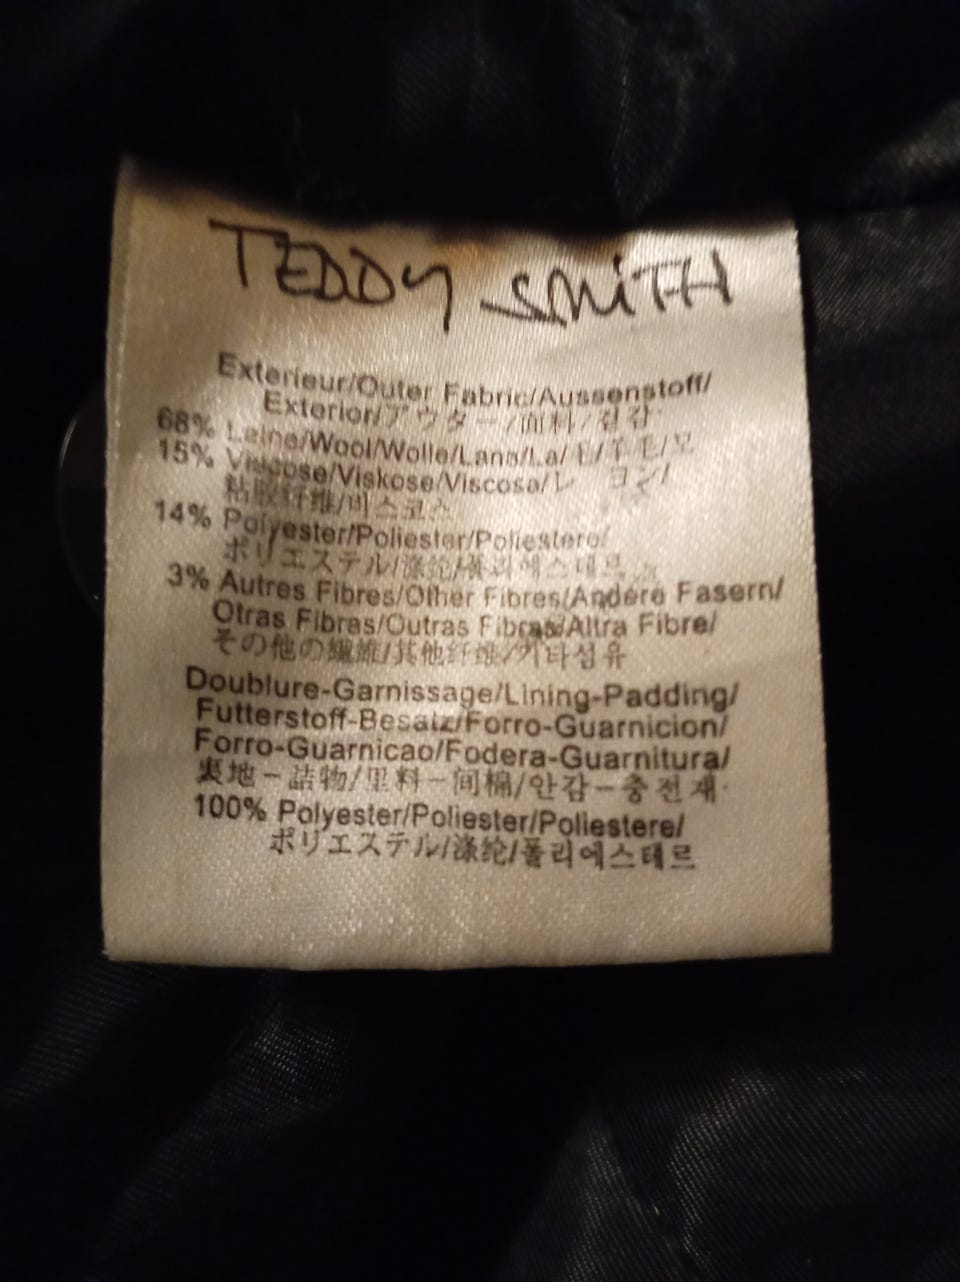 TEDDY SMITH
Exterieur/Outer Fabric/Aussenstoff/
Exterior/アウター/面料/겉감
68% Laine/Wool/Wolle/Lana/La/毛/羊毛/모
15% Viscose/Viskose/Viscosa/レ ヨン/
粘胶纤维/비스코스
14% Polyester/Poliester/Poliestere/
ポリエステル/涤纶/폴리에스테르
3% Autres Fibres/Other Fibres/Andere Fasern/
Otras Fibras/Outras Fibras/Altra Fibre/
その他の繊維/其他纤维/기타섬유
Doublure-Garnissage/Lining-Padding/
Futterstoff-Besatz/Forro-Guarnicion/
Forro-Guarnicao/Fodera-Guarnitura/
裏地-詰物/里料-间棉/안감-충전재
100% Polyester/Poliester/Poliestere/
ポリエステル/涤纶/폴리에스테르